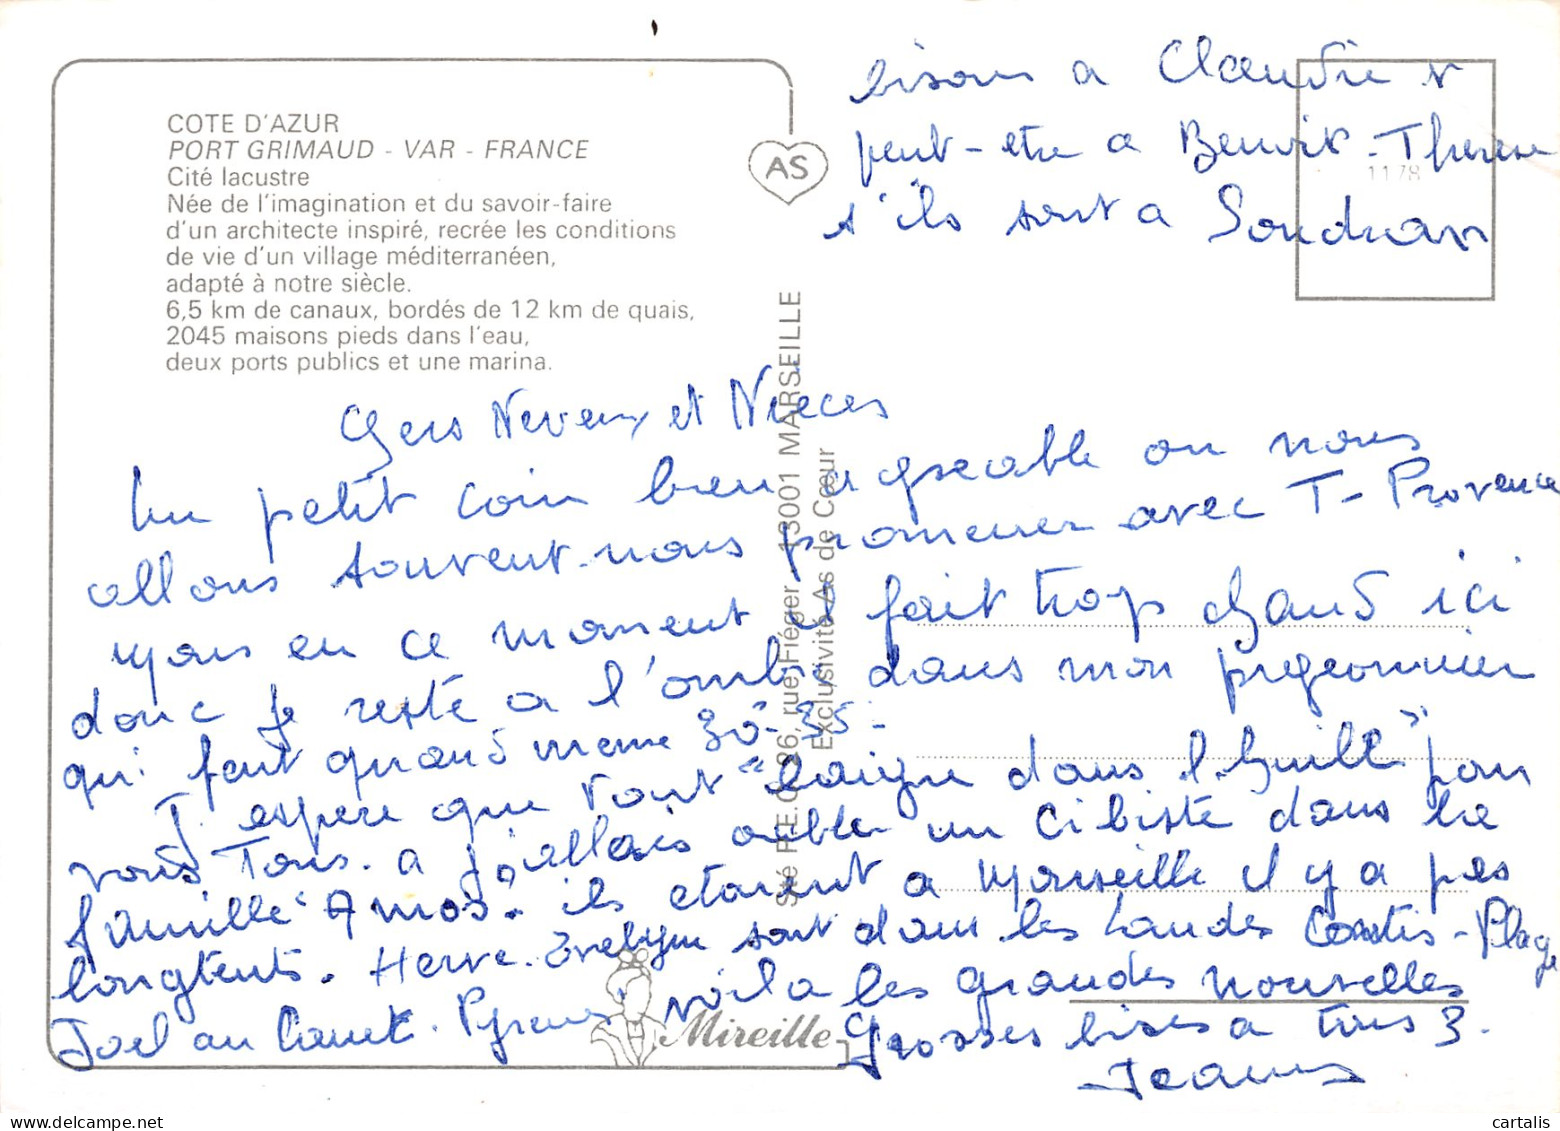 COTE D'AZUR
PORT GRIMAUD - VAR - FRANCE
Cité lacustre
Née de l'imagination et du savoir-faire
d'un architecte inspiré, recrée les conditions
de vie d'un village méditerranéen,
adapté à notre siècle.
6,5 km de canaux, bordés de 12 km de quais,
2045 maisons pieds dans l'eau,
deux ports publics et une marina.
AS
1178
bisous a Claudie &
peut-etre a Benoit - Therese
s'ils sont a
Chers Neveux et Nieces
Un petit coin bien agreable ou nous
allons souvent nous promener avec T- Provence
Mais en ce moment il fait trop chaud ici
donc je reste a l'ombre dans mon pigeonnier
qui fait quand meme 30°-35 -
J'espere que tout "baigne dans l'huile" pour
vous Tous. a j'allais oublier un Cibiste dans la
famille "Amos". ils etaient a Marseille il y a pas
longtents. Herve. Evelyne sont dans les Landes Contis-Plage
Joel au Canet. Pyrenes. voila les grandes nouvelles
Grosses bises a tous 3.
Sté PE.C. 36, rue Fiéger, 13001 MARSEILLE
Exclusivité As de Cœur
Mireille
cartalis
delcampe.net